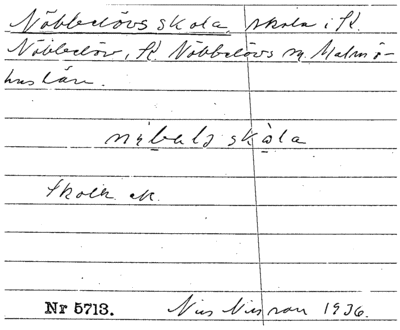 Nöbbelövs skola, skola i K.
Nöbbelöv, K. Nöbbelövs sn, Malmö-
hus län.
skola
Skolk. ek.
Nr 5713. Nils Nilsson 1936.